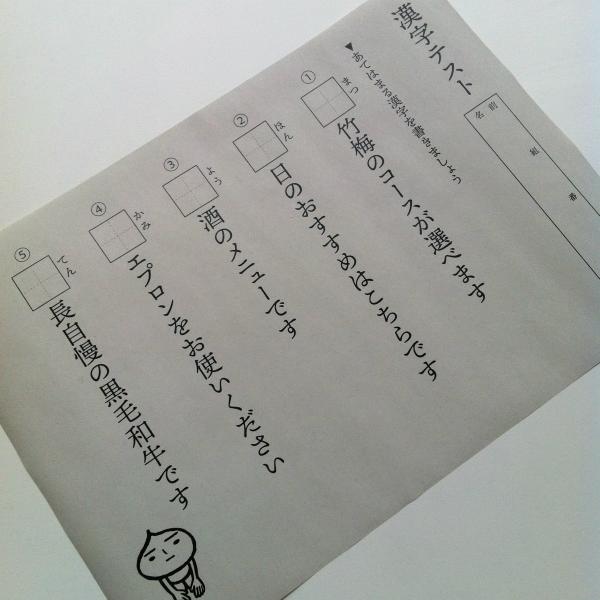 漢字テスト
名前 組 番
▼あてはまる漢字を書きましょう
① まつ
竹梅のコースが選べます
② ほん
日のおすすめはこちらです
③ よう
酒のメニューです
④ かみ
エプロンをお使いください
⑤ てん
長自慢の黒毛和牛です